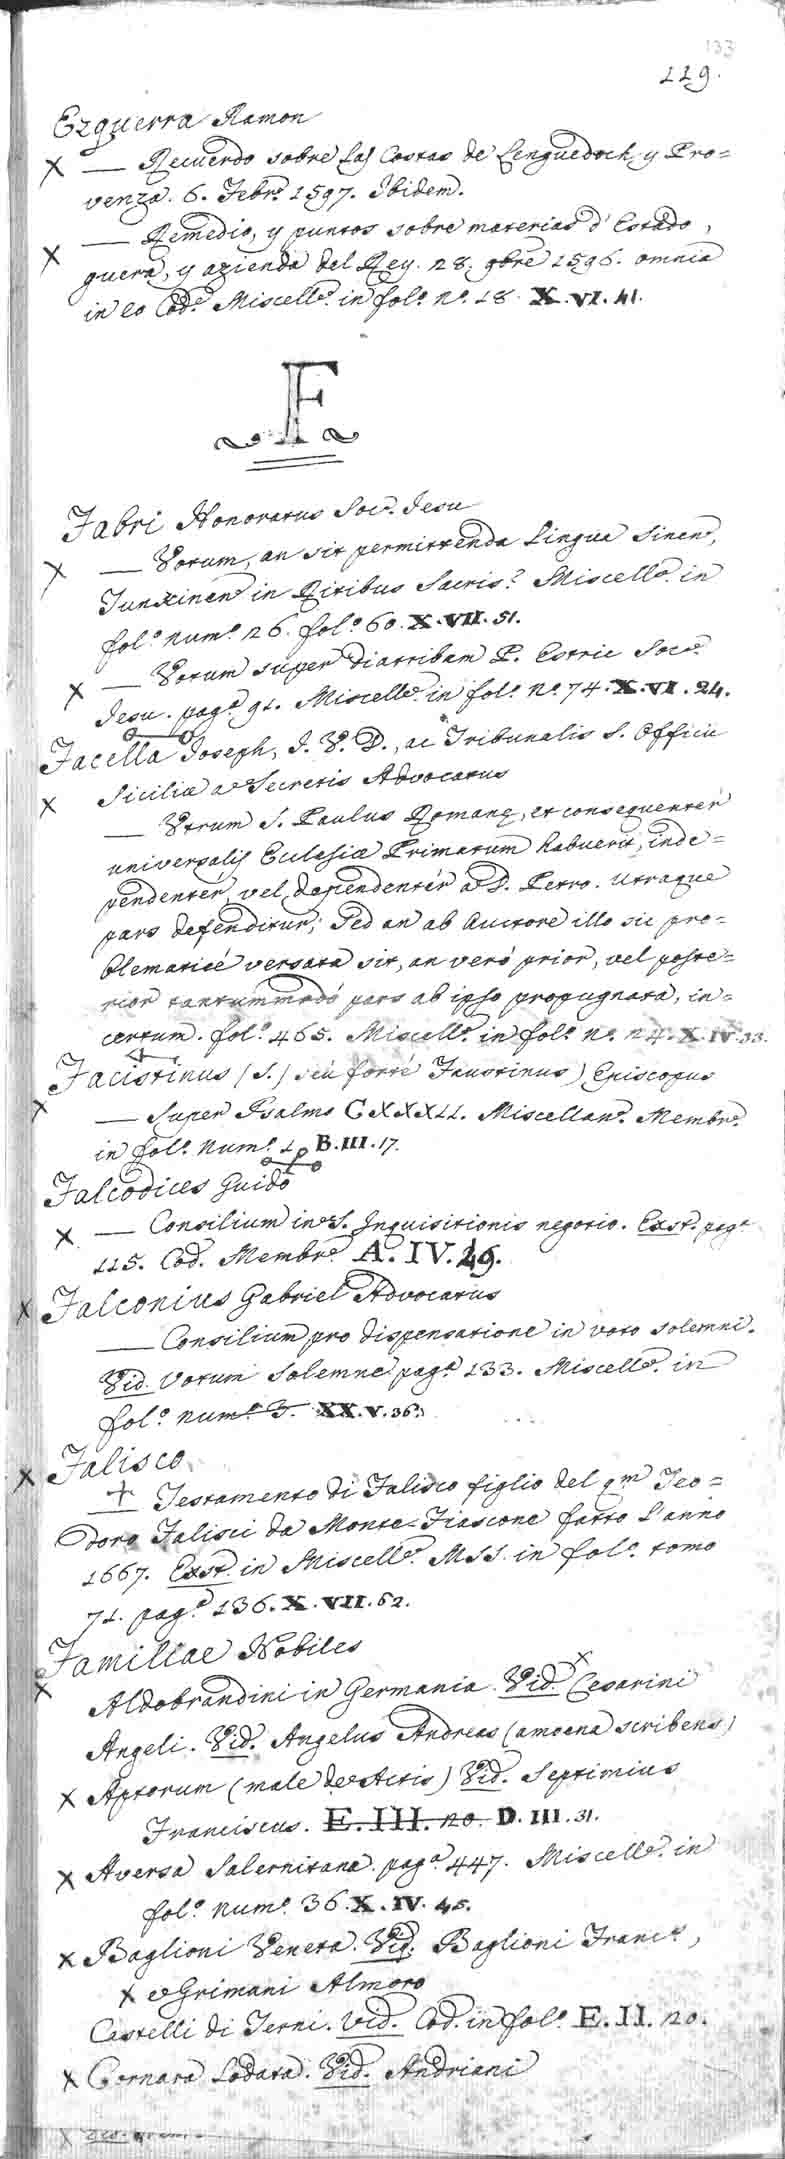 133
119.
Ezquerra Ramon
X — Recuerdo sobre las Costas de Lenguedoch, y Pro=
venza. 6. Febr.º 1597. Ibidem.
X — Remedio, y puntos sobre materias d' Estado,
guera, y azienda del Rey. 28. 9bre 1596. omnia
in eo Cod.e Miscell.º in fol.º n.º 18. X.VI.41.
F
Fabri Honoratus Soc. Jesu
X — Votum, an sit permittenda Lingua Sinen,
in Ritibus Sacris? Miscell.º in
fol.º num.º 26. fol.º 60. X.VII.51.
X — Votum super diatribam P. Estrie Soc.
Jesu. pag.ª 91. Miscell.º in fol.º n.º 74. X.VI.24.
Facella Joseph, J. V. D., ac Tribunalis S. Officii
X Siciliæ a Secretis Advocatus
— Utrum S. Paulus Romanę, et consequentér
universalis Ecclesiæ Primatum habuerit, inde=
pendentér, vel dependentér a D. Petro. Utraque
pars defenditur; Sed an ab Auctore illo sic pro=
blematicé versata sit, an veró prior, vel poste=
rior tantummodó pars ab ipso propugnata, in=
certum. fol.º 465. Miscell.º in fol.º n.º 24. X.IV.33.
Facistinus (S.) seú forté Faustinus) Episcopus
X — Super Psalmo CXXXII. Miscellan.º Membr.º
in fol.º Num.º 1. B.III.17.
Falcodices Guido
X — Consilium in S. Inquisitionis negotio. Exst. pag.ª
115. Cod. Membr.º A.IV.49.
X Falconius Gabriel Advocatus
— Consilium pro dispensatione in voto solemni.
Vid. Votum solemne pag.ª 133. Miscell.º in
fol.º num.º 3. XX.V.36.
X Falisco
+ Testamento di Falisco figlio del qm Teo=
doro Falisci da Monte-Fiascone fatto l'anno
1667. Exst. in Miscell.º MSS. in fol.º tomo
71. pag.ª 136. X.VII.62.
Familiae Nobiles
X Aldobrandini in Germania. Vid. X Cesarini
Angeli. Vid. Angelus Andreas (amoena scribens)
X Aptorum (male de Actis) Vid. Septimius
Franciscus. E.III.20. D.III.31.
X Aversa Salernitana. pag.ª 447. Miscell.º in
fol.º num.º 36. X.IV.45.
X Baglioni Veneta. Vid. Baglioni Franc.º,
X & Grimani Almoro
Castelli di Terni. Vid. Cod. in fol.º E.II.20.
X Cornara Lodata. Vid. Andriani